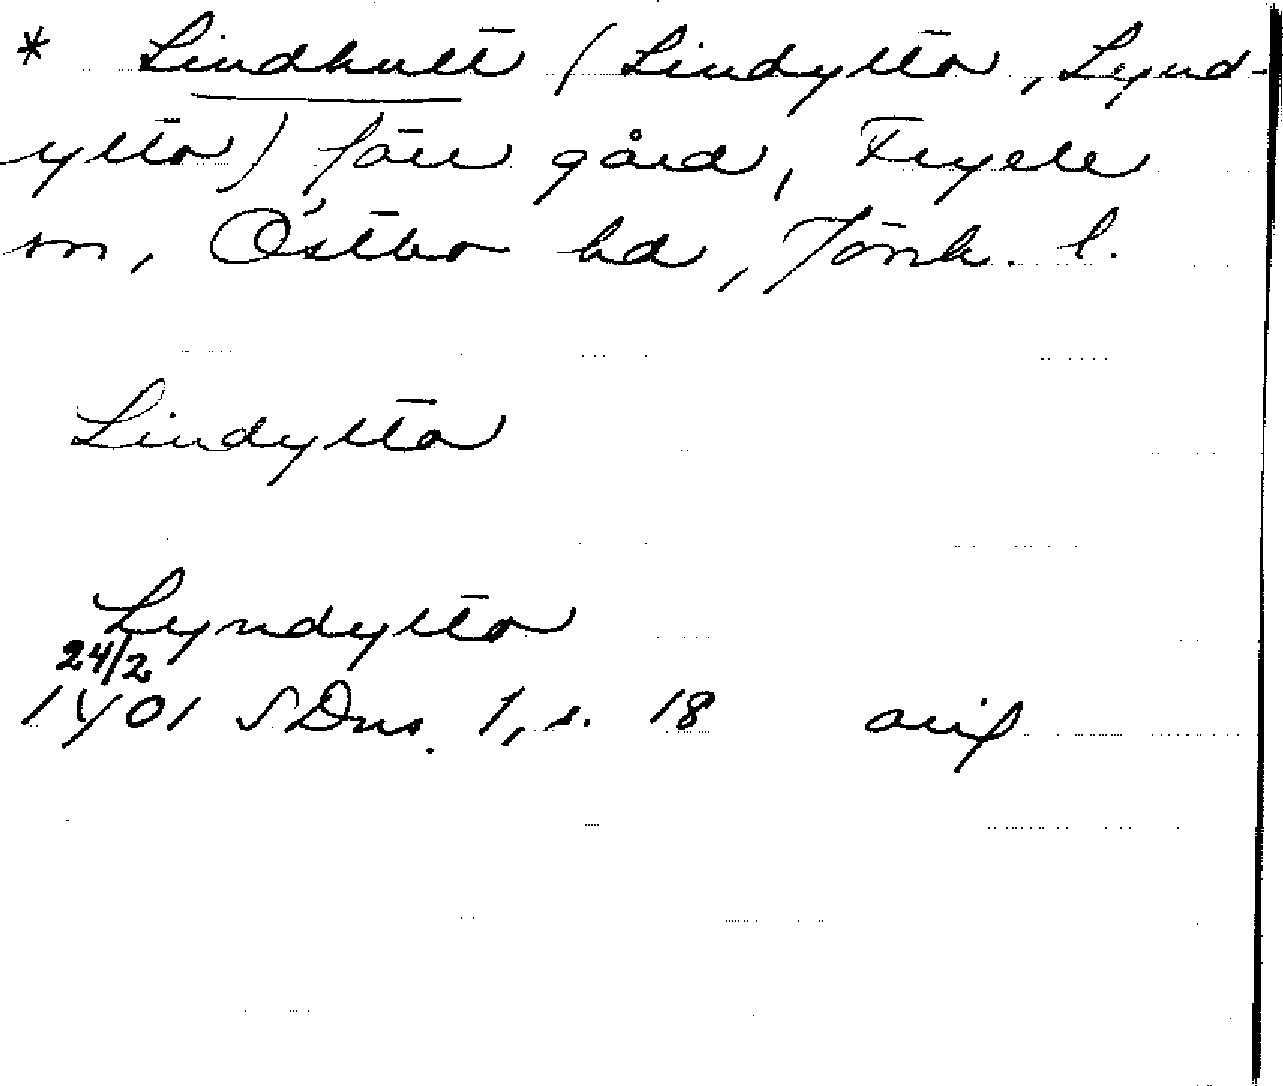 * Lindhult (Lindylta, Lynd-
ylta) förr gård, Fryele
sn, Östbo hd, Jönk. l.
Lindylta
Lyndylta
24/2
1401 SDns. 1, s. 18 avs